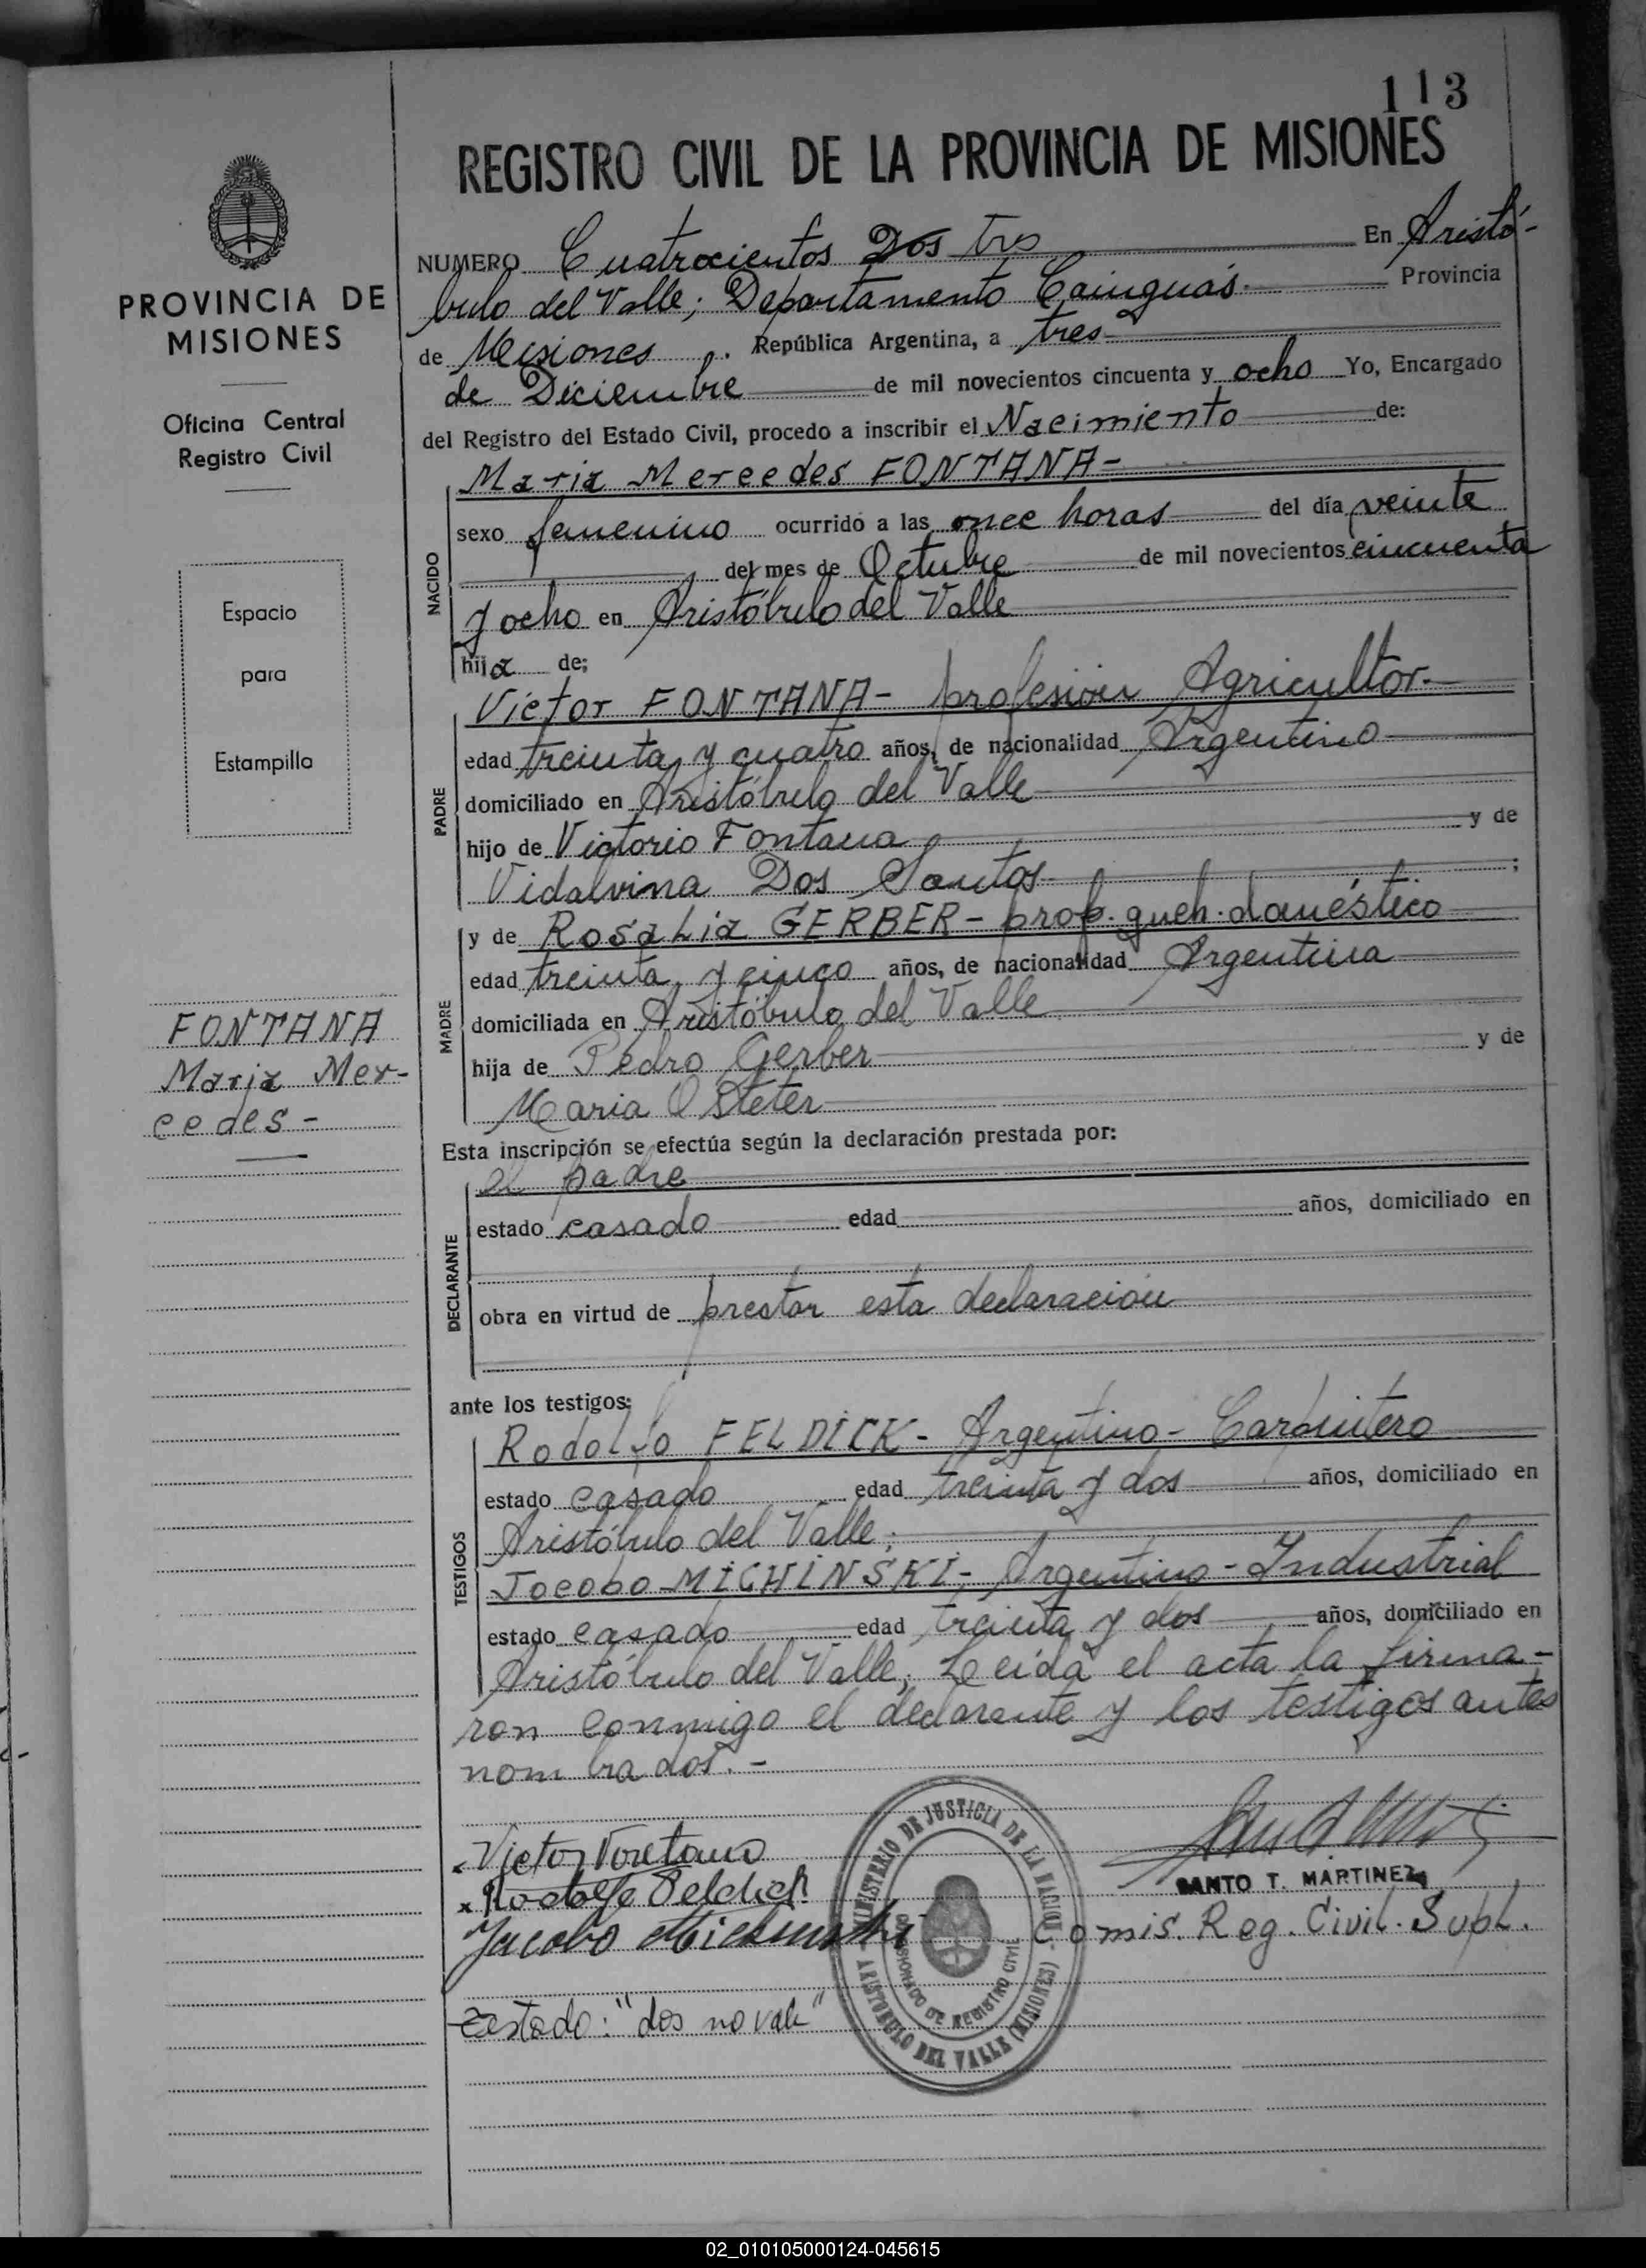 113
REGISTRO CIVIL DE LA PROVINCIA DE MISIONES
PROVINCIA DE
MISIONES
Oficina Central
Registro Civil
Espacio
para
Estampilla
FONTANA
Maria Mer-
cedes -
NUMERO Cuatrocientos Dos tres En Aristó-
bulo del Valle; Departamento Cainguás. Provincia
de Misiones, . República Argentina, a tres
de Diciembre de mil novecientos cincuenta y ocho Yo, Encargado
del Registro del Estado Civil, procedo a inscribir el Nacimiento de:
NACIDO
Maria Mercedes FONTANA -
sexo femenino ocurrido a las once horas del día veinte
del mes de Octubre de mil novecientos cincuenta
y ocho en Aristóbulo del Valle
hija de:
PADRE
Victor FONTANA - profesión Agricultor.
edad treinta y cuatro años, de nacionalidad Argentino
domiciliado en Aristóbulo del Valle
hijo de Victorio Fontana y de
Vidalvina Dos Santos ;
MADRE
y de Rosalia GERBER - prof. queh. doméstico
edad treinta y cinco años, de nacionalidad Argentina
domiciliada en Aristóbulo del Valle
hija de Pedro Gerber y de
Maria Osteter
Esta inscripción se efectúa según la declaración prestada por:
DECLARANTE
el padre
estado casado edad años, domiciliado en
obra en virtud de prestar esta declaración
ante los testigos:
TESTIGOS
Rodolfo FELDICK - Argentino - Carpintero
estado casado edad treinta y dos años, domiciliado en
Aristóbulo del Valle;
Jocobo MICHINSKI - Argentino - Industrial
estado casado edad treinta y dos años, domiciliado en
Aristóbulo del Valle; Leida el acta la firma-
ron conmigo el declarante y los testigos antes
nombrados. -
Victor Fontana
x Rodolfo Feldich
Jacobo Michinski
MINISTERIO DE JUSTICIA DE LA NACION
COMISIONADO DE REGISTRO CIVIL
ARISTOBULO DEL VALLE (MISIONES)
SANTO T. MARTINEZ
Comis. Reg. Civil. Supl.
Testado: "dos no vale"
02_010105000124-045615